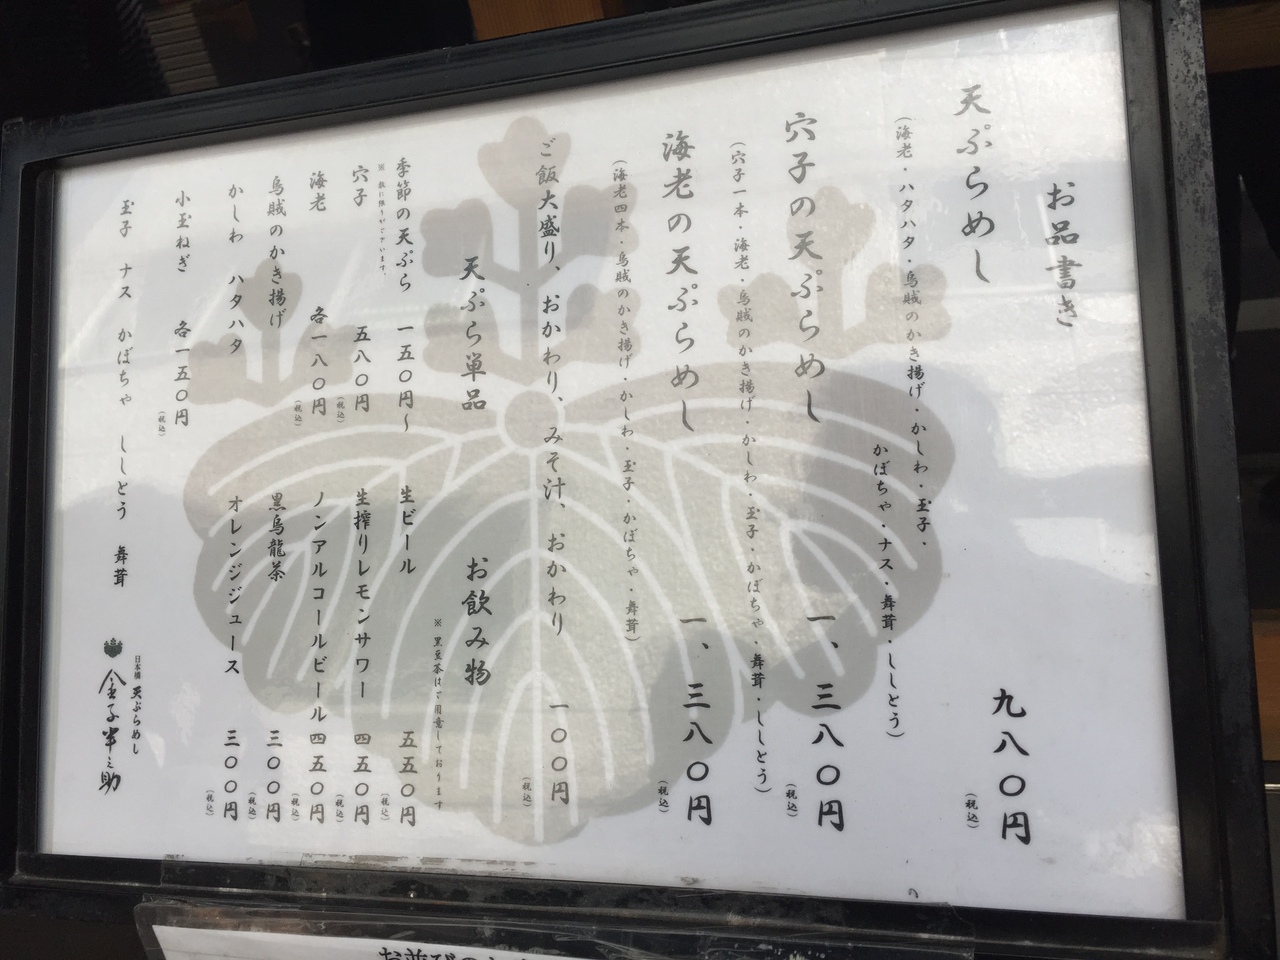 お品書き
天ぷらめし 九八〇円(税込)
(海老・ハタハタ・烏賊のかき揚げ・かしわ・玉子・
かぼちゃ・ナス・舞茸・ししとう)
穴子の天ぷらめし 一、三八〇円(税込)
(穴子一本・海老・烏賊のかき揚げ・かしわ・玉子・かぼちゃ・舞茸・ししとう)
海老の天ぷらめし 一、三八〇円(税込)
(海老四本・烏賊のかき揚げ・かしわ・玉子・かぼちゃ・舞茸)
ご飯大盛り、おかわり、みそ汁、おかわり 一〇〇円(税込)
天ぷら単品
季節の天ぷら 一五〇円〜
※ 数に限りがございます。
穴子 五八〇円(税込)
海老 各一八〇円(税込)
烏賊のかき揚げ
かしわ ハタハタ
小玉ねぎ 各一五〇円(税込)
玉子 ナス かぼちゃ ししとう 舞茸
お飲み物
※ 黒豆茶はご用意しております
生ビール 五五〇円(税込)
生搾りレモンサワー 四五〇円(税込)
ノンアルコールビール 四五〇円(税込)
黒烏龍茶 三〇〇円(税込)
オレンジジュース 三〇〇円(税込)
日本橋 天ぷらめし
金子半之助